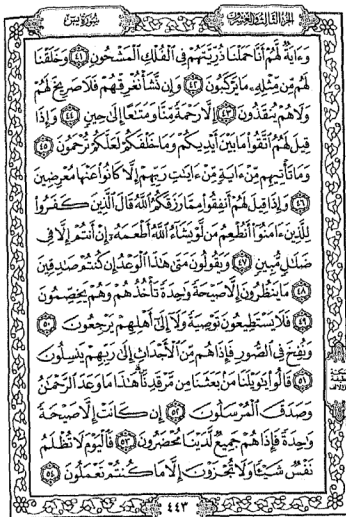 الجزء الثالث والعشرون سورة يس
وَءَايَةٌ لَّهُمْ أَنَّا حَمَلْنَا ذُرِّيَّتَهُمْ فِي الْفُلْكِ الْمَشْحُونِ ٤١ وَخَلَقْنَا
لَهُم مِّن مِّثْلِهِ مَا يَرْكَبُونَ ٤٢ وَإِن نَّشَأْ نُغْرِقْهُمْ فَلَا صَرِيخَ لَهُمْ
وَلَا هُمْ يُنقَذُونَ ٤٣ إِلَّا رَحْمَةً مِّنَّا وَمَتَاعًا إِلَىٰ حِينٍ ٤٤ وَإِذَا
قِيلَ لَهُمُ اتَّقُوا مَا بَيْنَ أَيْدِيكُمْ وَمَا خَلْفَكُمْ لَعَلَّكُمْ تُرْحَمُونَ ٤٥
وَمَا تَأْتِيهِم مِّنْ ءَايَةٍ مِّنْ ءَايَاتِ رَبِّهِمْ إِلَّا كَانُوا عَنْهَا مُعْرِضِينَ
٤٦ وَإِذَا قِيلَ لَهُمْ أَنفِقُوا مِمَّا رَزَقَكُمُ اللَّهُ قَالَ الَّذِينَ كَفَرُوا
لِلَّذِينَ ءَامَنُوا أَنُطْعِمُ مَن لَّوْ يَشَاءُ اللَّهُ أَطْعَمَهُ إِنْ أَنتُمْ إِلَّا فِي
ضَلَالٍ مُّبِينٍ ٤٧ وَيَقُولُونَ مَتَىٰ هَٰذَا الْوَعْدُ إِن كُنتُمْ صَادِقِينَ
٤٨ مَا يَنظُرُونَ إِلَّا صَيْحَةً وَاحِدَةً تَأْخُذُهُمْ وَهُمْ يَخِصِّمُونَ
٤٩ فَلَا يَسْتَطِيعُونَ تَوْصِيَةً وَلَا إِلَىٰ أَهْلِهِمْ يَرْجِعُونَ ٥٠
وَنُفِخَ فِي الصُّورِ فَإِذَا هُم مِّنَ الْأَجْدَاثِ إِلَىٰ رَبِّهِمْ يَنسِلُونَ
٥١ قَالُوا يَاوَيْلَنَا مَن بَعَثَنَا مِن مَّرْقَدِنَا هَٰذَا مَا وَعَدَ الرَّحْمَٰنُ
وَصَدَقَ الْمُرْسَلُونَ ٥٢ إِن كَانَتْ إِلَّا صَيْحَةً
وَاحِدَةً فَإِذَا هُمْ جَمِيعٌ لَّدَيْنَا مُحْضَرُونَ ٥٣ فَالْيَوْمَ لَا تُظْلَمُ
نَفْسٌ شَيْئًا وَلَا تُجْزَوْنَ إِلَّا مَا كُنتُمْ تَعْمَلُونَ ٥٤
٤٤٣